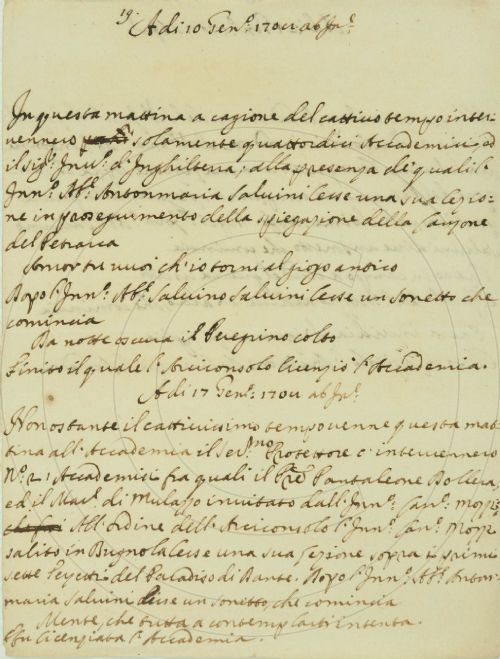 19.
A di 10 Gen.º 170 ab Jn.e
In questa mattina a cagione del cattivo tempo inter-
vennero solamente quattordici Accademici, ed
il Sig.r Inv.º d'Inghilterra; alla presenza de' quali l'
Inn.º Ab.e Antonmaria Salvini lesse una sua Lezio-
ne in proseguimento della spiegazione della Canzone
del Petrarca
Amor se vuoi ch'io torni al giogo antico
Dopo l'Inn.º Ab.e Salvino Salvini lesse un sonetto che
comincia
Da notte oscura il Peregrino colto
Finito il quale l'Arciconsolo licenziò l'Accademia.
A di 17 Gen.º 170 ab Jn.e
Non ostante il cattivissimo tempo venne questa mat
tina all'Accademia il Ser.mo Protettore e intervennero
N.º 21 Accademici fra quali il P.re Pantaleone Dollera,
ed il Mar.e di Mulazzo invitato dall'Inn.º Can.º
All'ordine dell'Arciconsolo l'Inn.º Can.º
salito in Bugnola lesse una sua Lezione sopra i primi
sette del Paradiso di Dante. Dopo l'Inn.º Ab.e Anton-
maria Salvini lesse un sonetto, che comincia
Mente, che tutta a contemplarti intenta.
E fu licenziata l'Accademia.